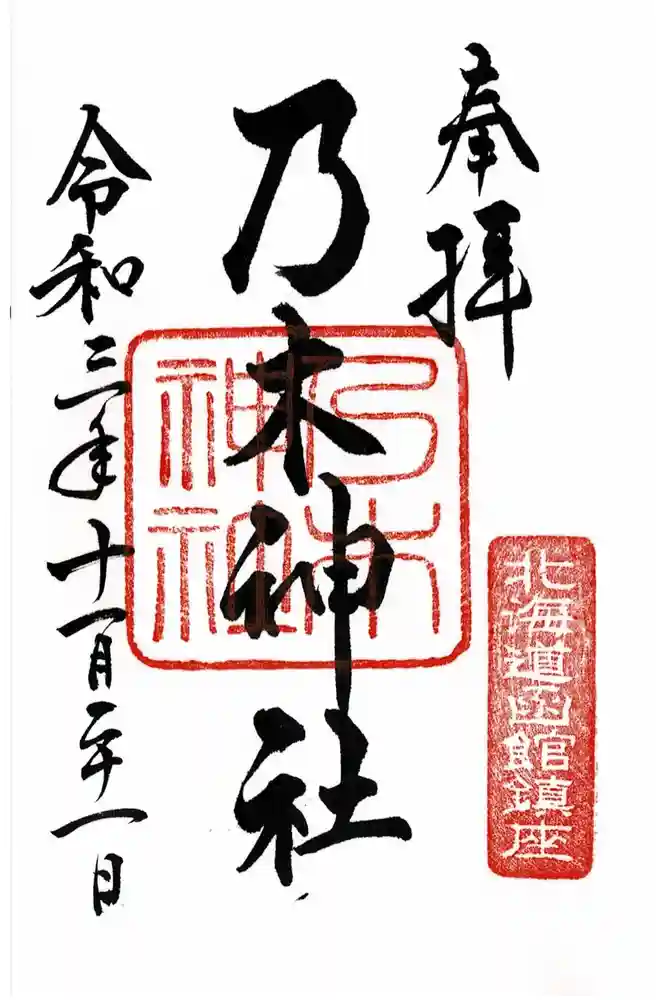 奉拝
北海道函館鎮座
乃木神社
乃木
神社
令和三年十一月二十一日